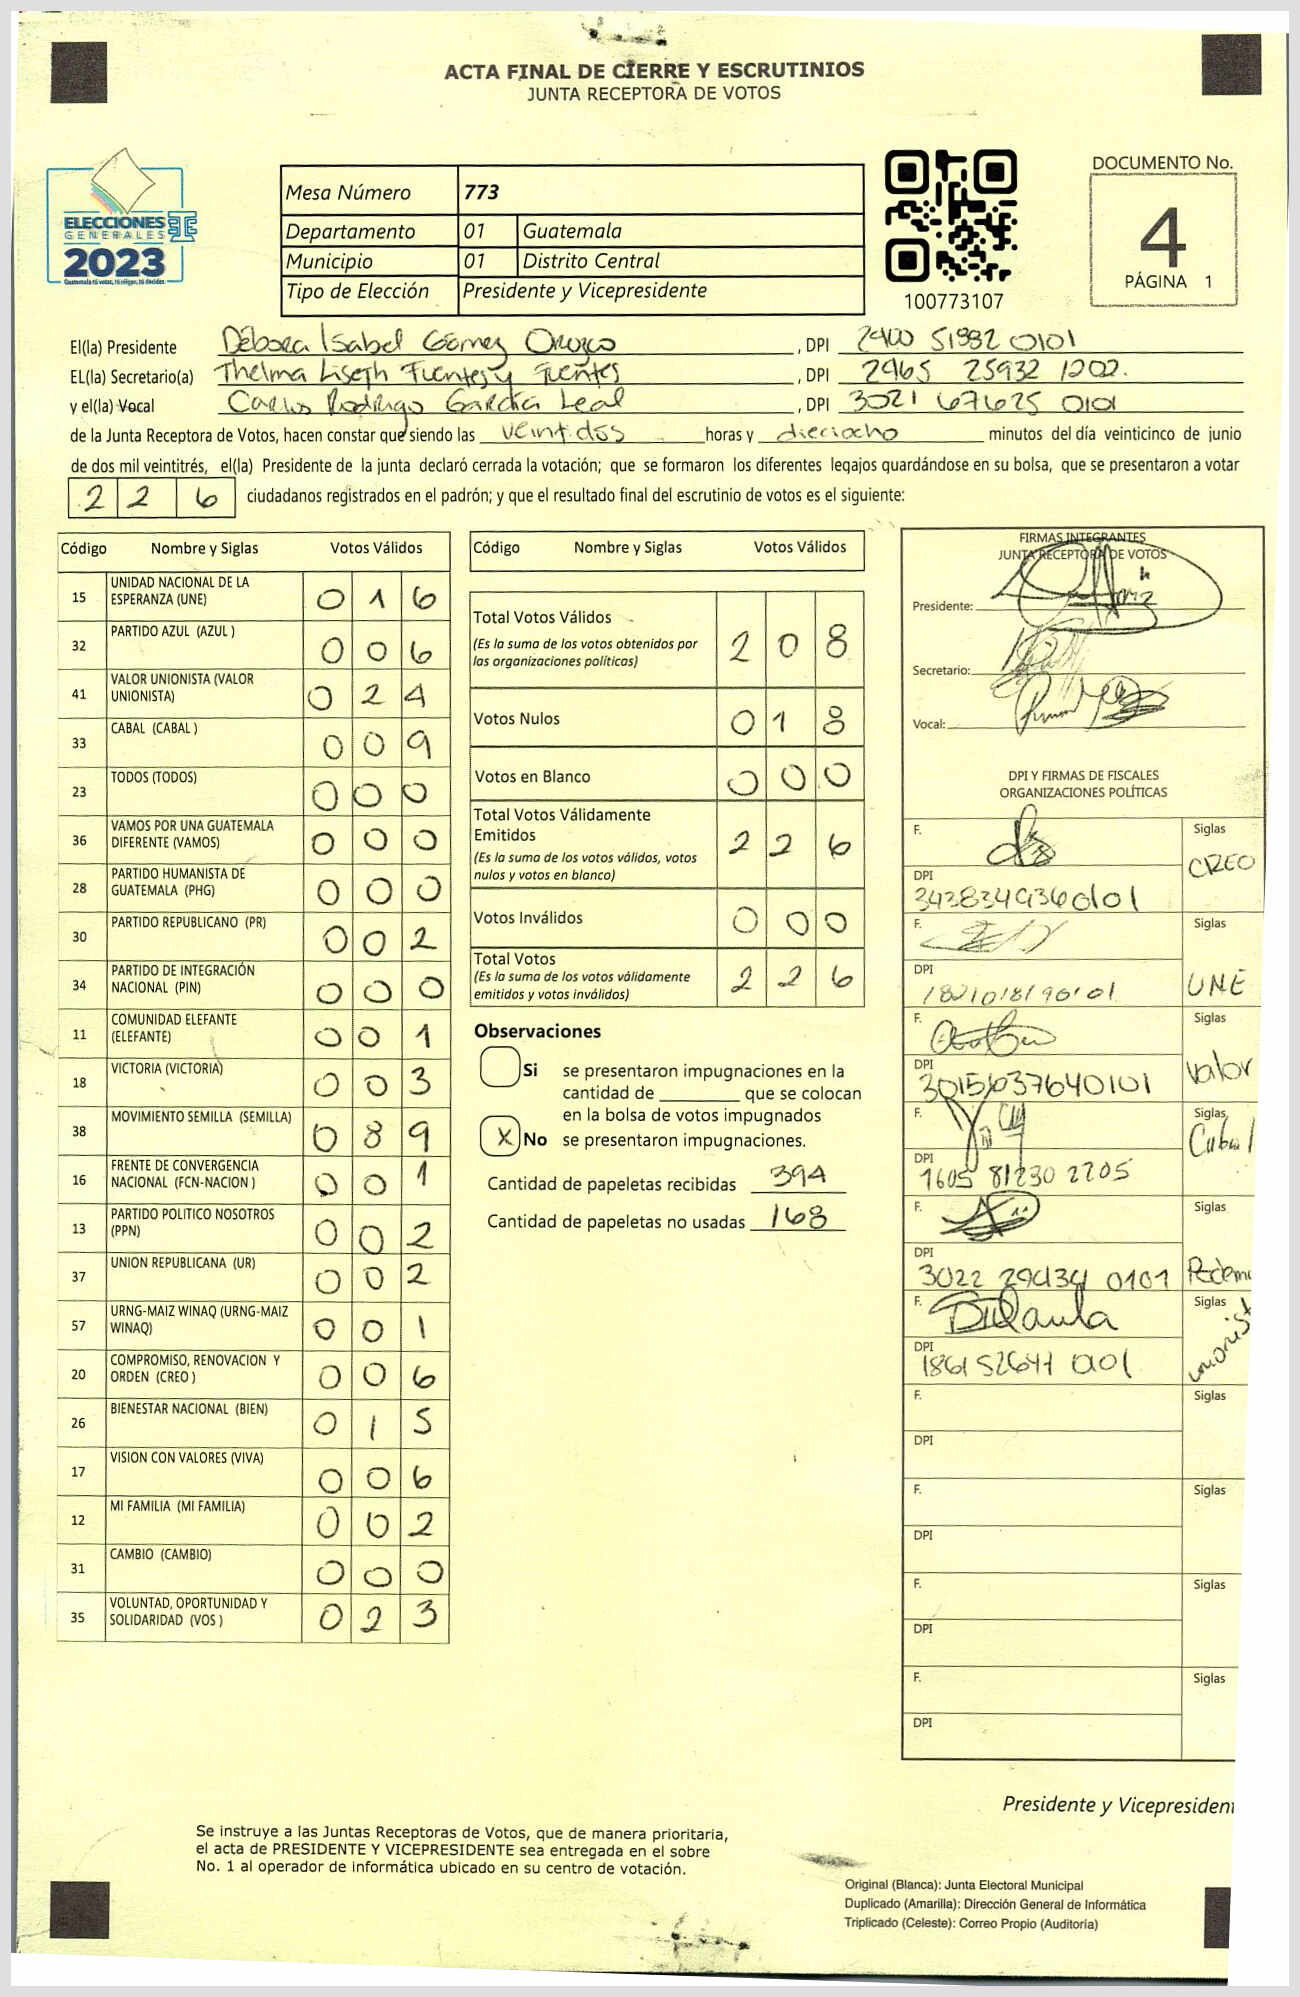 ACTA FINAL DE CIERRE Y ESCRUTINIOS
JUNTA RECEPTORA DE VOTOS
ELECCIONES
GENERALES
2023
Guatemala tú votas, tú eliges, tú decides.
Mesa Número 773
Departamento 01 Guatemala
Municipio 01 Distrito Central
Tipo de Elección Presidente y Vicepresidente
100773107
DOCUMENTO No.
4
PÁGINA 1
El(la) Presidente Débora Isabel Gómez Orozco , DPI 2900 51982 0101
EL(la) Secretario(a) Thelma Liseth Fuentes y Fuentes , DPI 2965 25932 1202.
y el(la) Vocal Carlos Rodrigo García Leal , DPI 3021 67625 0101
de la Junta Receptora de Votos, hacen constar que siendo las veintidos horas y dieciocho minutos del día veinticinco de junio
de dos mil veintitrés, el(la) Presidente de la junta declaró cerrada la votación; que se formaron los diferentes legajos guardándose en su bolsa, que se presentaron a votar
226 ciudadanos registrados en el padrón; y que el resultado final del escrutinio de votos es el siguiente:
Código Nombre y Siglas Votos Válidos
15 UNIDAD NACIONAL DE LA ESPERANZA (UNE) 016
32 PARTIDO AZUL (AZUL ) 006
41 VALOR UNIONISTA (VALOR UNIONISTA) 024
33 CABAL (CABAL ) 009
23 TODOS (TODOS) 000
36 VAMOS POR UNA GUATEMALA DIFERENTE (VAMOS) 000
28 PARTIDO HUMANISTA DE GUATEMALA (PHG) 000
30 PARTIDO REPUBLICANO (PR) 002
34 PARTIDO DE INTEGRACIÓN NACIONAL (PIN) 000
11 COMUNIDAD ELEFANTE (ELEFANTE) 001
18 VICTORIA (VICTORIA) 003
38 MOVIMIENTO SEMILLA (SEMILLA) 089
16 FRENTE DE CONVERGENCIA NACIONAL (FCN-NACION ) 001
13 PARTIDO POLITICO NOSOTROS (PPN) 002
37 UNION REPUBLICANA (UR) 002
57 URNG-MAIZ WINAQ (URNG-MAIZ WINAQ) 001
20 COMPROMISO, RENOVACION Y ORDEN (CREO ) 006
26 BIENESTAR NACIONAL (BIEN) 015
17 VISION CON VALORES (VIVA) 006
12 MI FAMILIA (MI FAMILIA) 002
31 CAMBIO (CAMBIO) 000
35 VOLUNTAD, OPORTUNIDAD Y SOLIDARIDAD (VOS ) 023
Código Nombre y Siglas Votos Válidos
Total Votos Válidos 208
(Es la suma de los votos obtenidos por
las organizaciones políticas)
Votos Nulos 018
Votos en Blanco 000
Total Votos Válidamente
Emitidos 226
(Es la suma de los votos válidos, votos
nulos y votos en blanco)
Votos Inválidos 000
Total Votos 226
(Es la suma de los votos válidamente
emitidos y votos inválidos)
Observaciones
Si se presentaron impugnaciones en la
cantidad de ________ que se colocan
en la bolsa de votos impugnados
X No se presentaron impugnaciones.
Cantidad de papeletas recibidas 394
Cantidad de papeletas no usadas 168
FIRMAS INTEGRANTES
JUNTA RECEPTORA DE VOTOS
Presidente:
Secretario:
Vocal:
DPI Y FIRMAS DE FISCALES
ORGANIZACIONES POLÍTICAS
F. Siglas
CREO
DPI
3438349360101
F. Siglas
UNE
DPI
F. Siglas
Valor
DPI
3015037640101
F. Siglas
Cabal
DPI
1605 81230 2205
F. Siglas
Podemo
DPI
3022 29434 0101
F. Siglas
unionist
DPI
F. Siglas
DPI
F. Siglas
DPI
F. Siglas
DPI
F. Siglas
DPI
Presidente y Vicepresident
Se instruye a las Juntas Receptoras de Votos, que de manera prioritaria,
el acta de PRESIDENTE Y VICEPRESIDENTE sea entregada en el sobre
No. 1 al operador de informática ubicado en su centro de votación.
Original (Blanca): Junta Electoral Municipal
Duplicado (Amarilla): Dirección General de Informática
Triplicado (Celeste): Correo Propio (Auditoría)